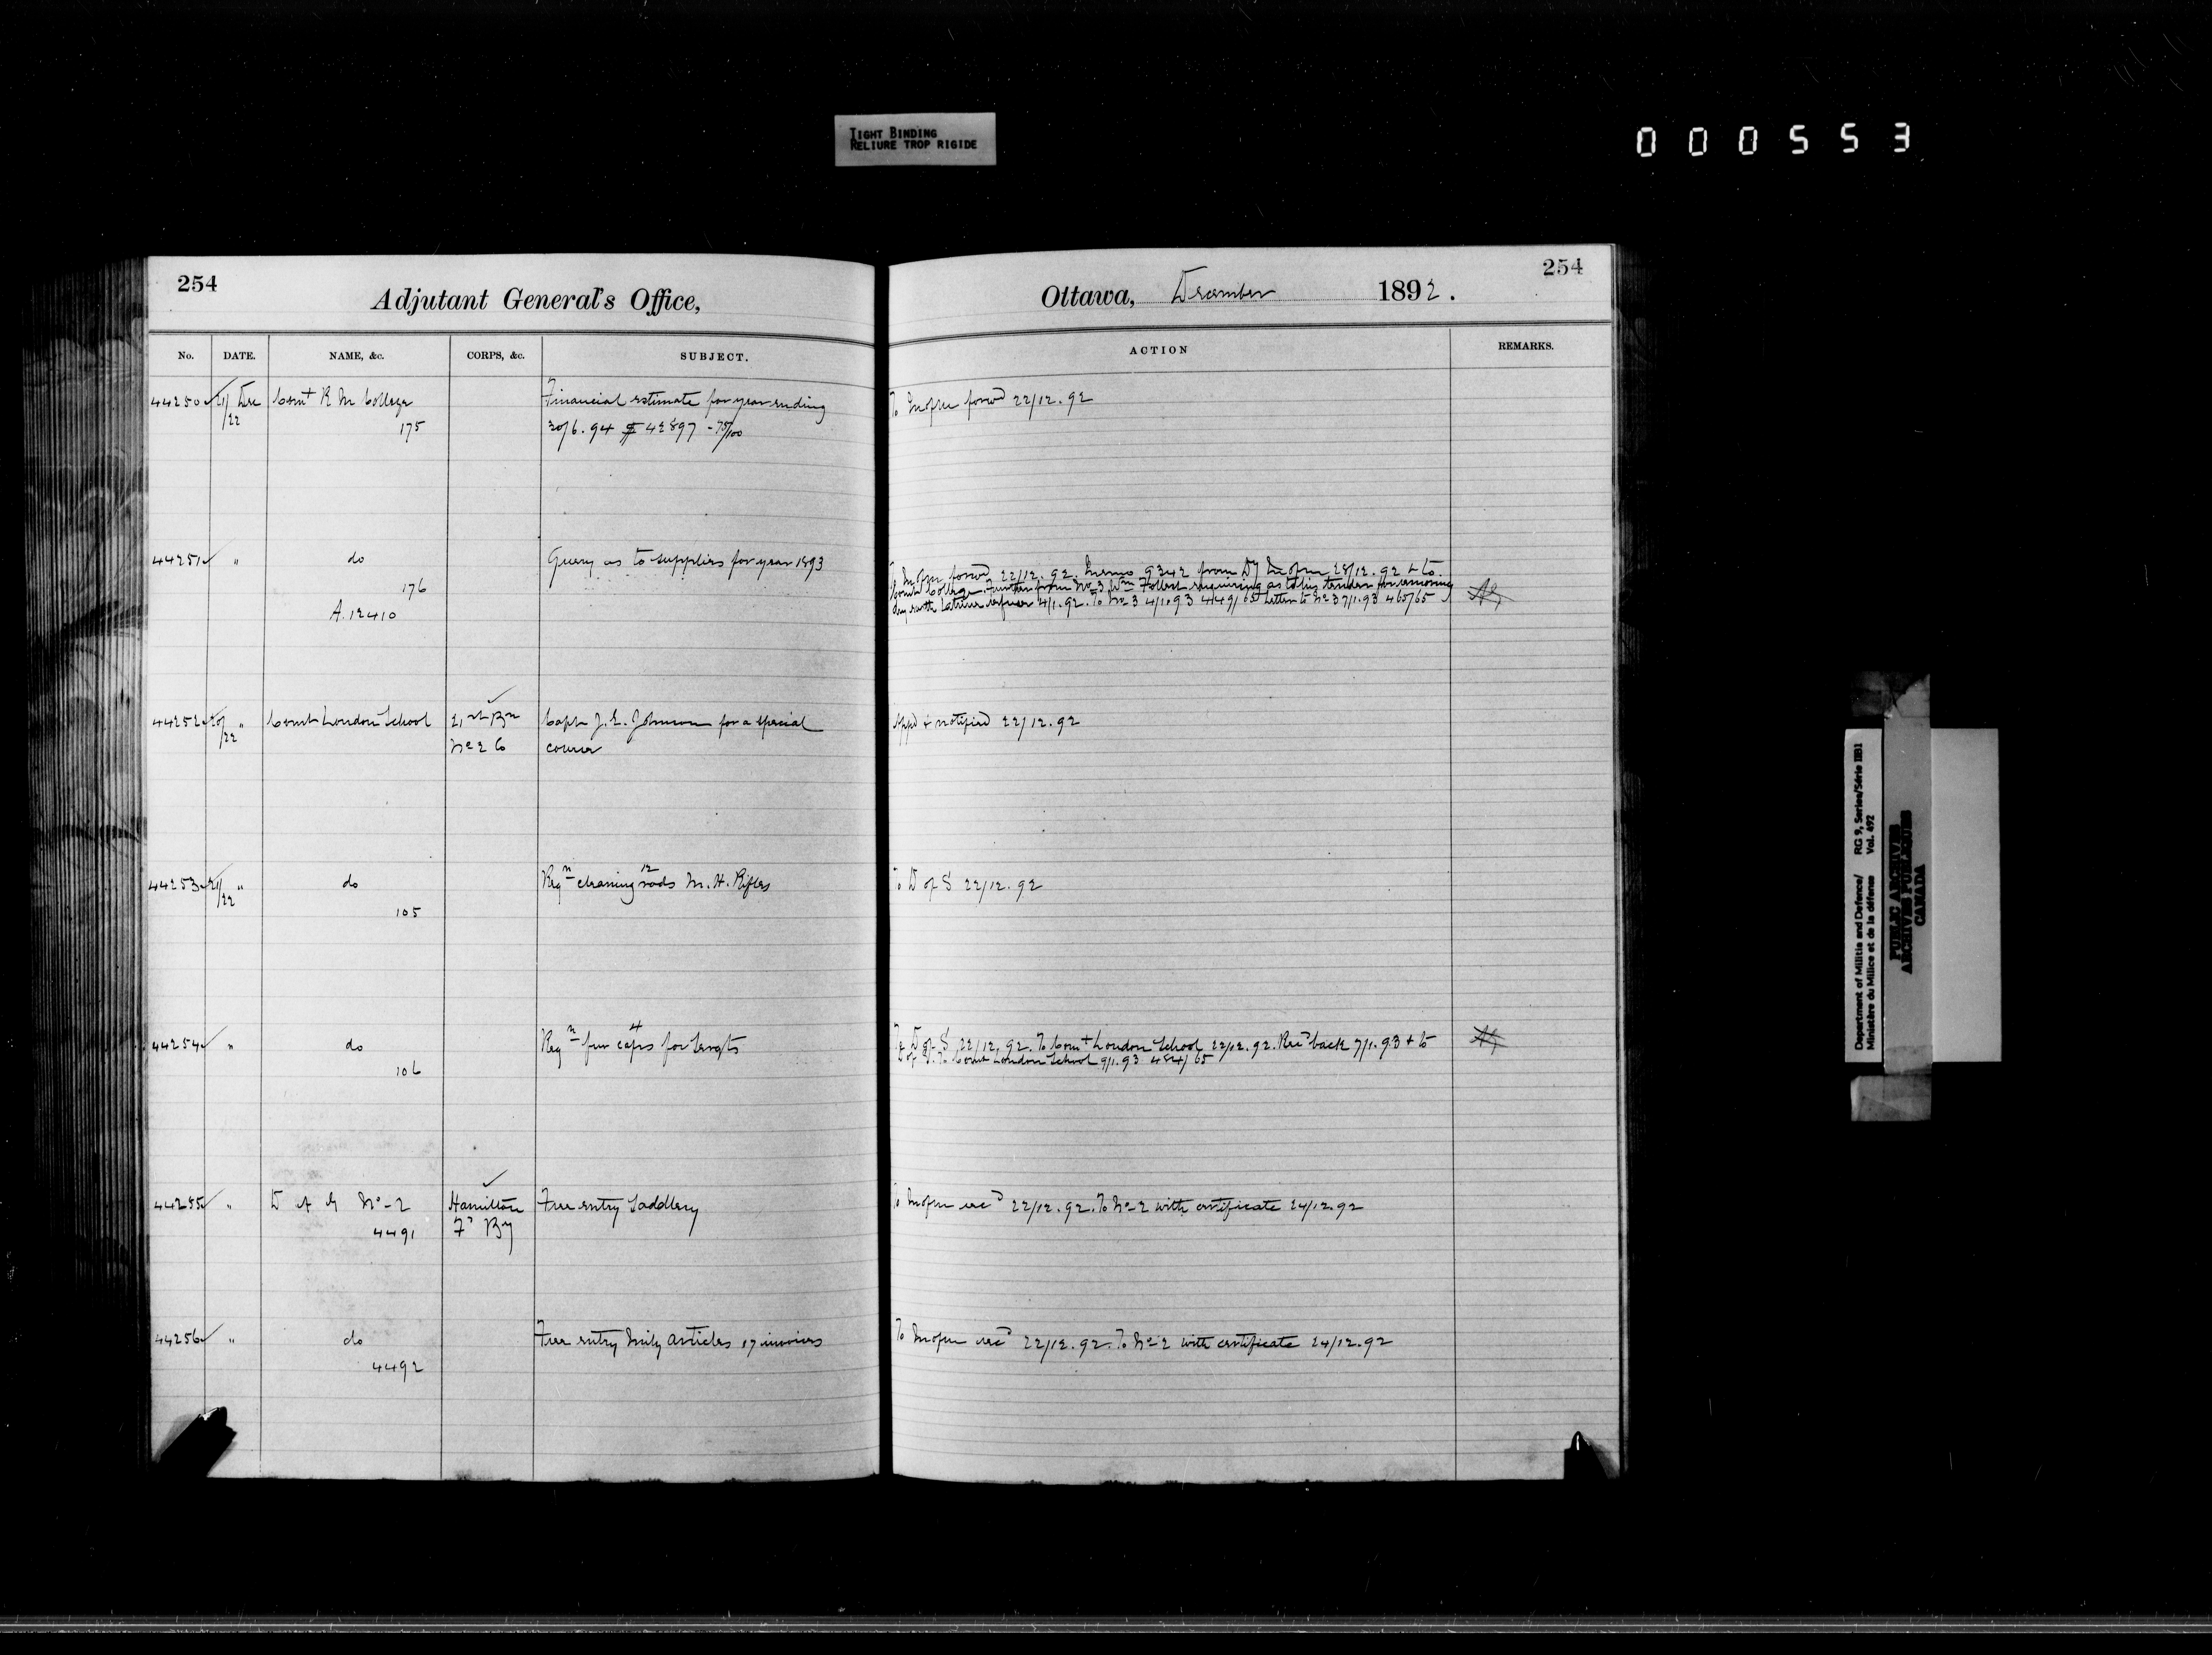 TIGHT BINDING
RELIURE TROP RIGIDE
000553
254
Adjutant General's Office,
Ottawa, December 1892.
254
No. DATE. NAME, &c. CORPS, &c. SUBJECT. ACTION REMARKS.
44250 21/22 Dec Comt R M College Financial estimate for year ending To M of M forwd 22/12.92
175 30/6.94 $ 42897 - 75/100
44251 " do Query as to supplies for year 1893
176
A.12410
To M of M forwd 22/12.92. Memo 9342 from Dy M of M 28/12.92 & to
Comdt College. Further from No 3 Wm Follest requiring as to his tender for removing
dry earth latrine refuse 4/1.92. To No 3 4/1.93 4149/65 Letter to No 3 7/1.93 460/65
44252 20/22 " Comt London School 21st Bn Capt J. E. Johnson for a special Appd & notified 22/12.92
No 2 Co course
44253 21/22 " do Reqn cleaning 12 rods M. H. Rifles To D of S 22/12.92
105
44254 " do Reqn fur caps 4 for Sergts
106
To D of S 22/12.92. To Comt London School 22/12.92. Recd back 7/1.93 & to
D of S. To Comt London School 9/1.93 484/65
44255 " D A G No-2 Hamilton Free entry Saddlery To M of M recd 22/12.92. To No 2 with certificate 24/12.92
4491 Fd By
44256 " do Free entry Mily articles 17 invoices To M of M recd 22/12.92. To No 2 with certificate 24/12.92
4492
Department of Militia and Defence/ RG 9, Series/Série IIB1
Ministère du Milice et de la défense Vol. 492
PUBLIC ARCHIVES
ARCHIVES PUBLIQUES
CANADA